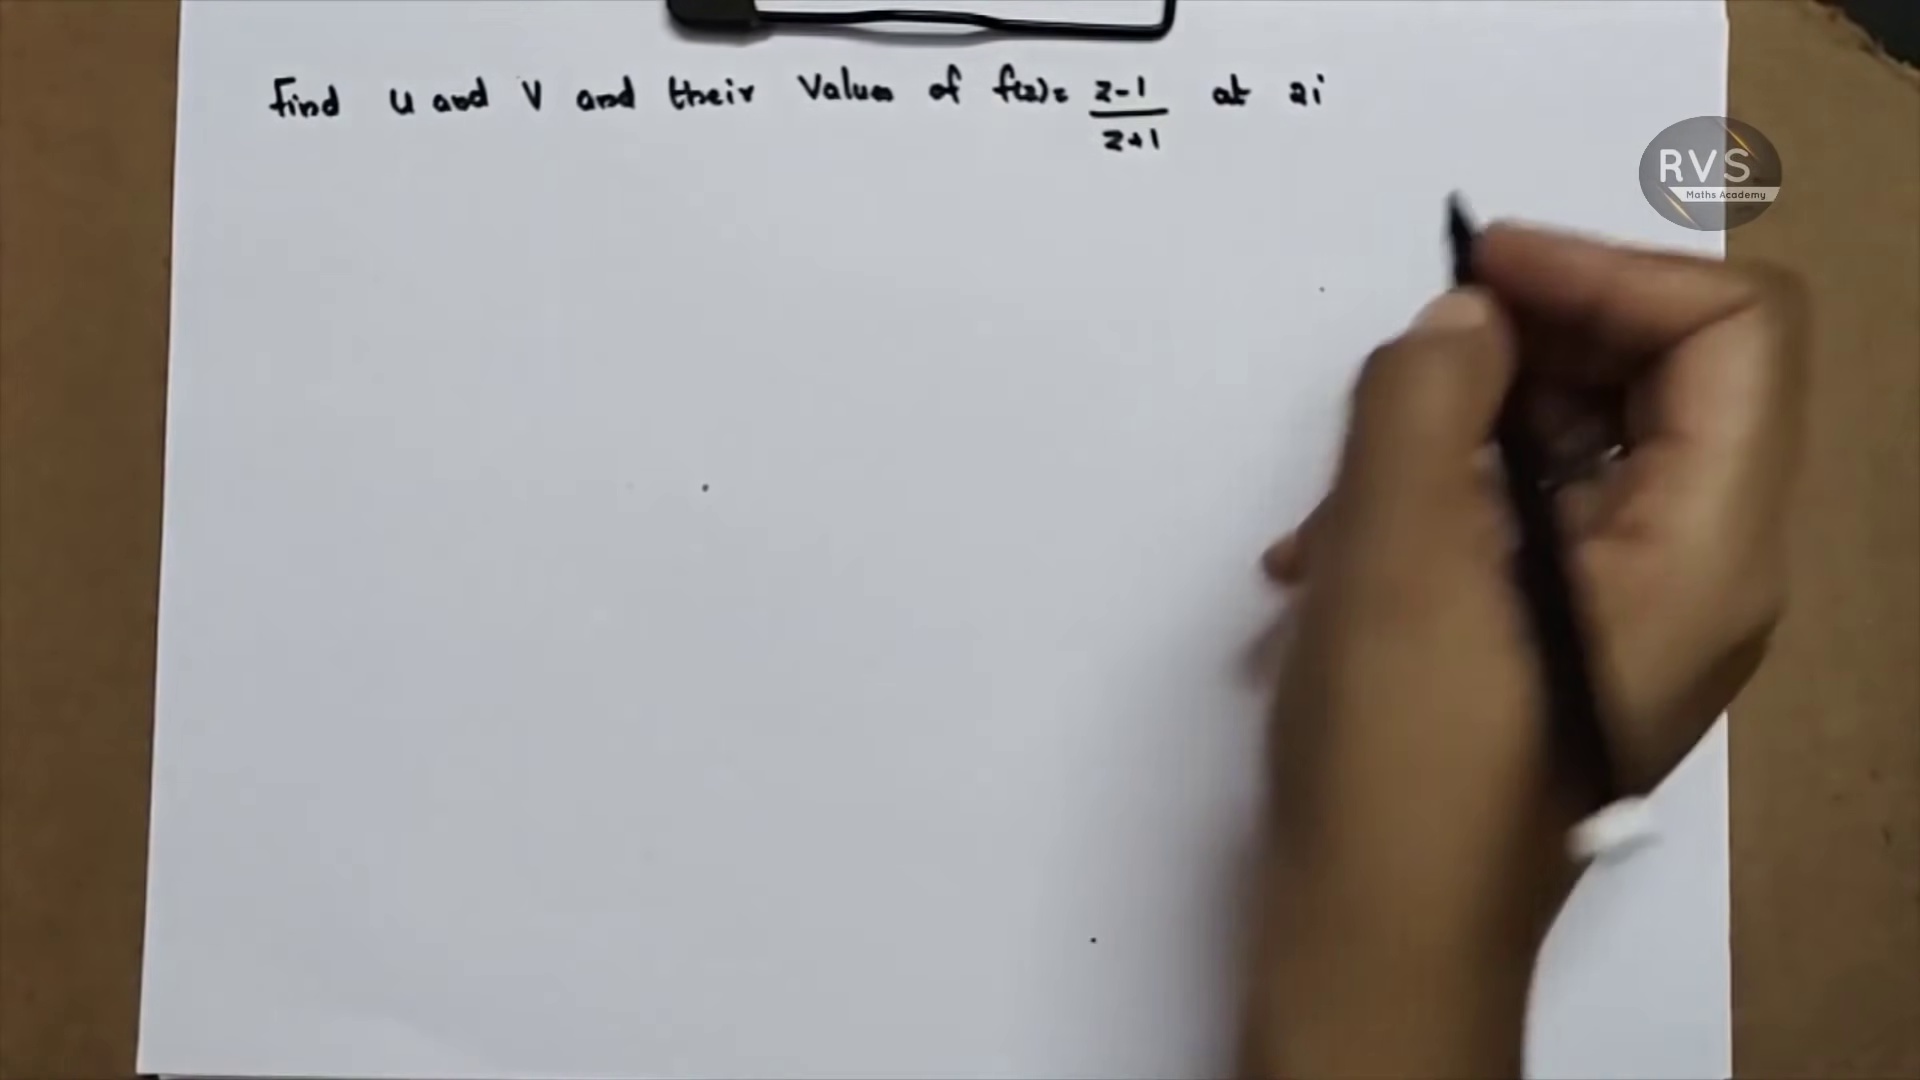 Find u and v and their values of f(z) = z-1/z+1 at 2i
RVS
Maths Academy